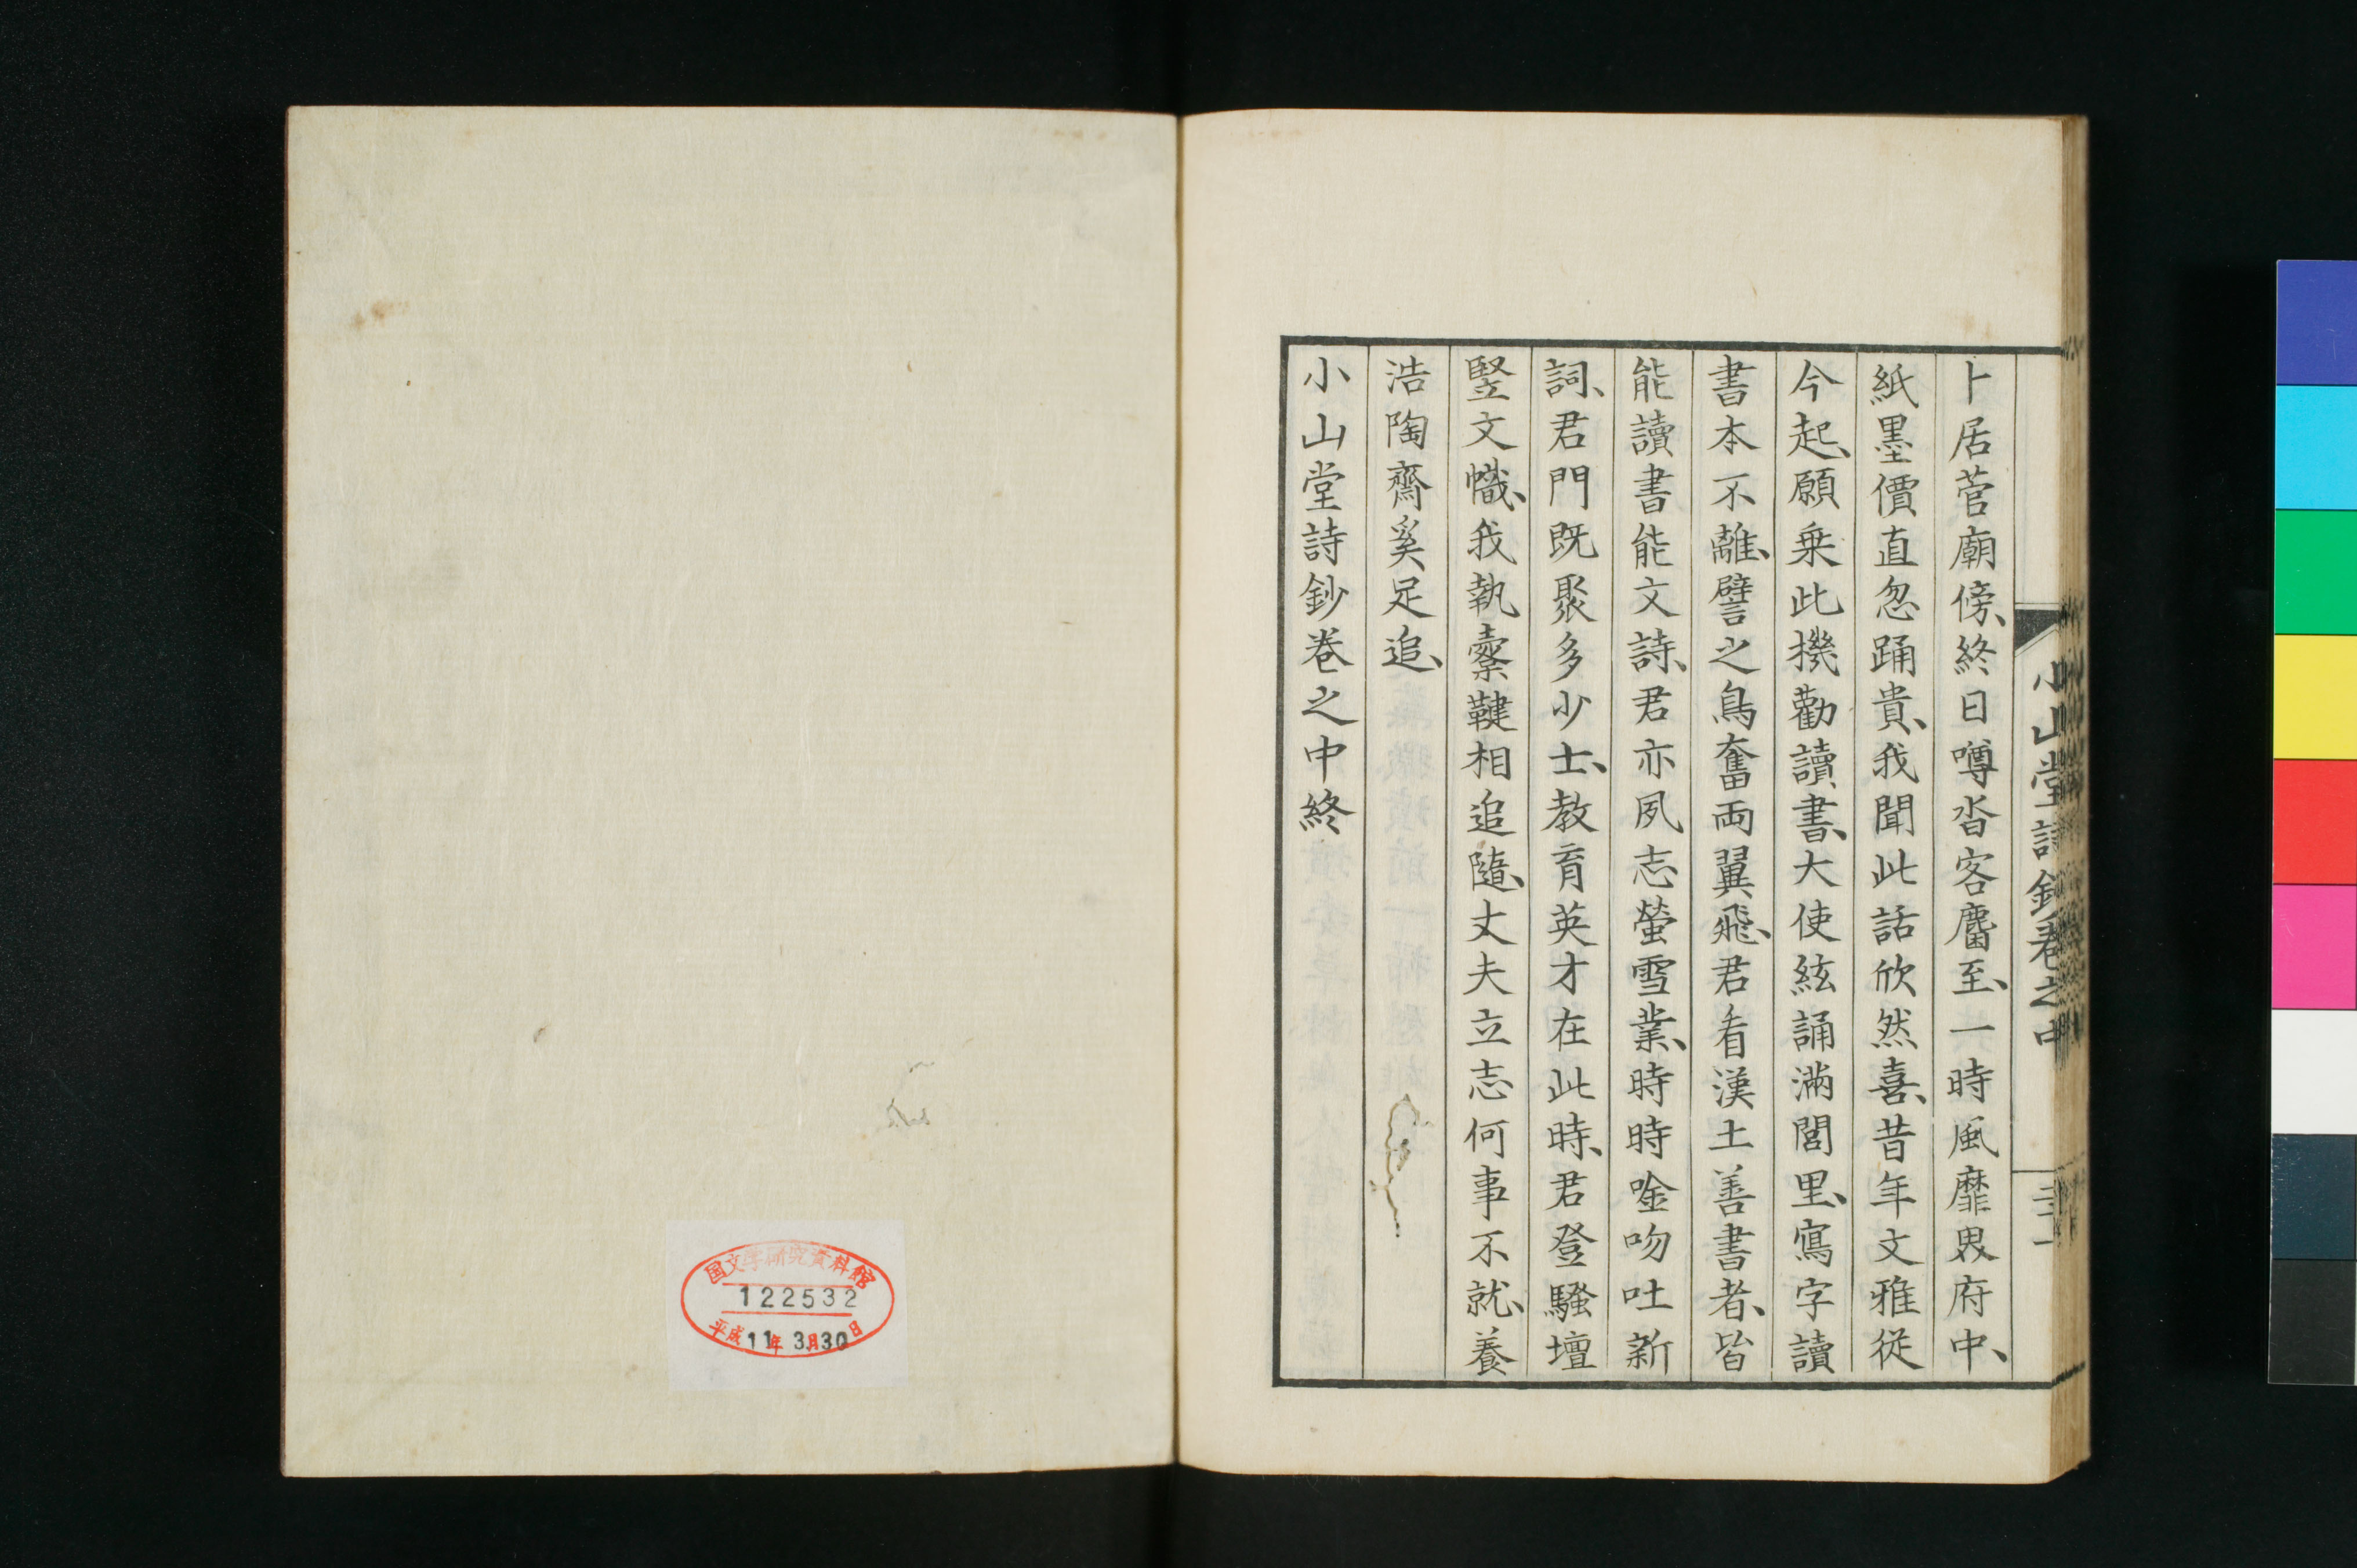 卜居菅廟傍、終日噂沓客麕至、一時風靡畏府中、
紙墨價直忽踊貴、我聞此話欣然喜、昔年文雅從
今起、願乗此機勸讀書、大使絃誦滿閭里、寫字讀
書本不離、譬之鳥奮兩翼飛、君看漢土善書者、皆
能讀書能文詩、君亦夙志螢雪業、時時唫吻吐新
詞、君門既聚多少士、教育英才在此時、君登騷壇
竪文幟、我執櫜鞬相追隨、丈夫立志何事不就、養
浩陶齋奚足追、
小山堂詩鈔卷之中終
小山堂詩鈔卷之中
国文学研究資料館
122532
平成11年3月30日